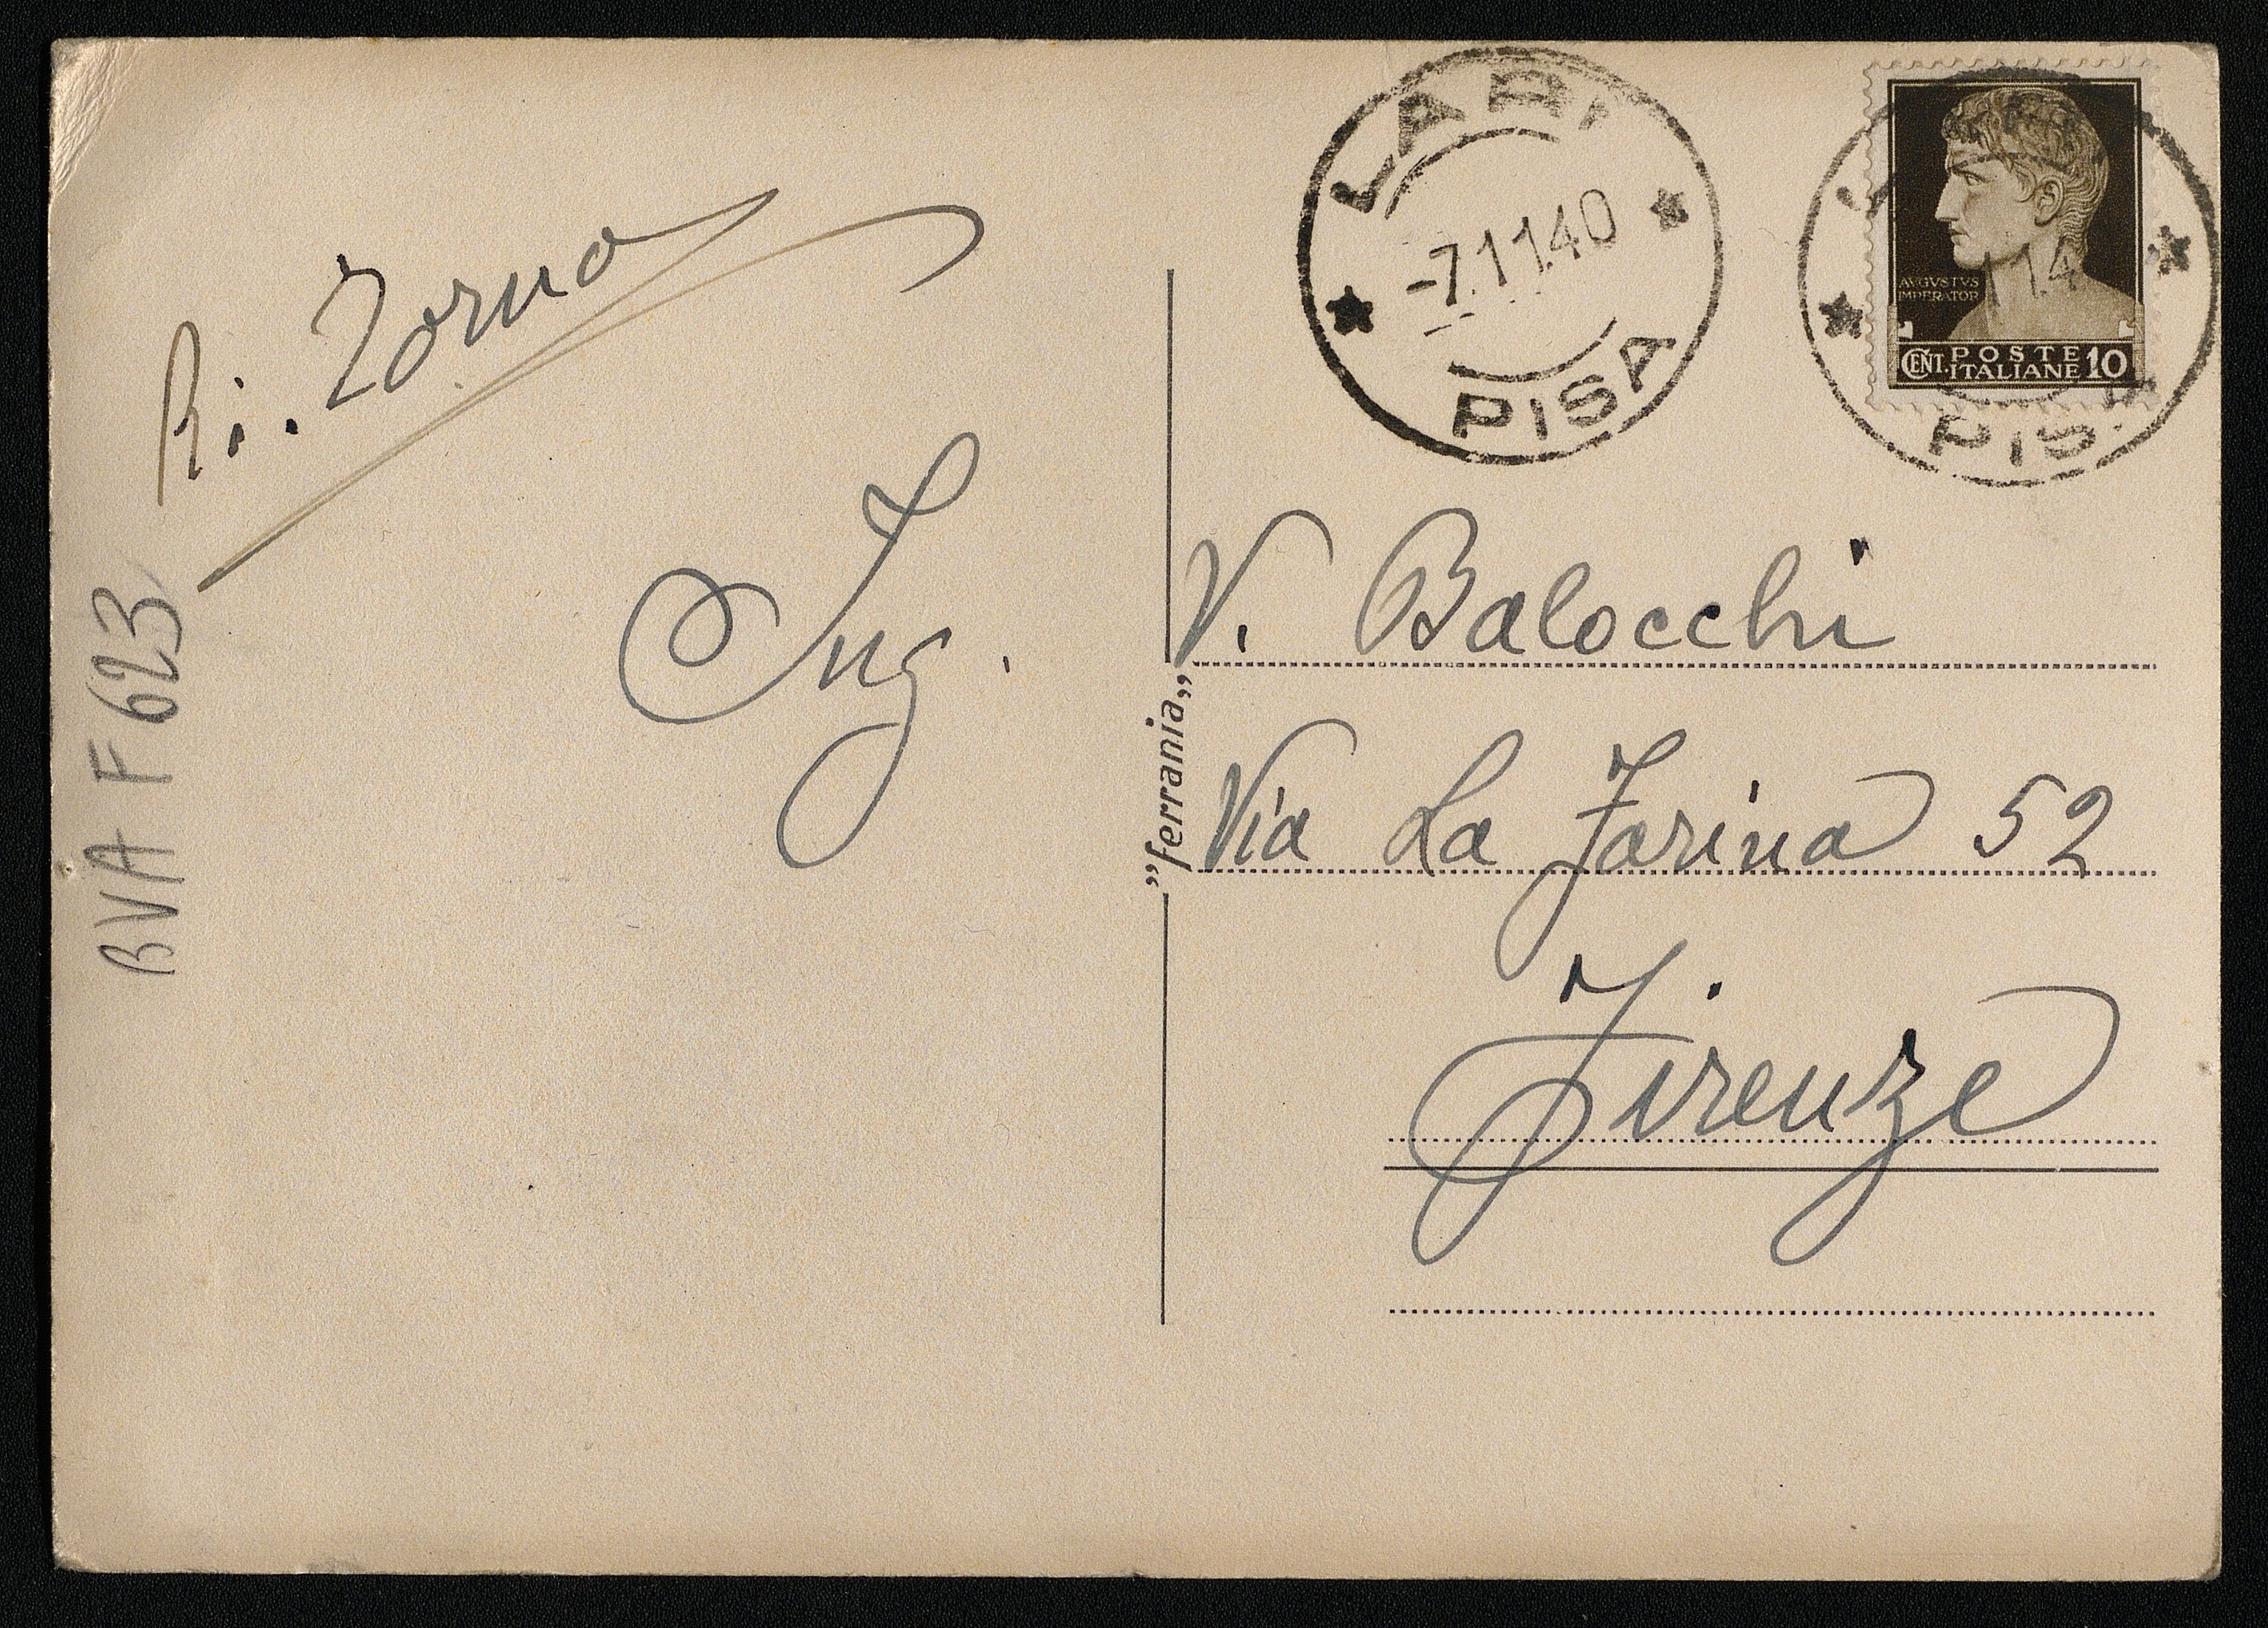 LARI
-7.11.40
PISA
AVGVSTVS
IMPERATOR
CENT. POSTE ITALIANE 10
PISA
Ri. Zorno
Ing. V. Balocchi
Via La Farina 52
Firenze
„ferrania„
BVA F 623